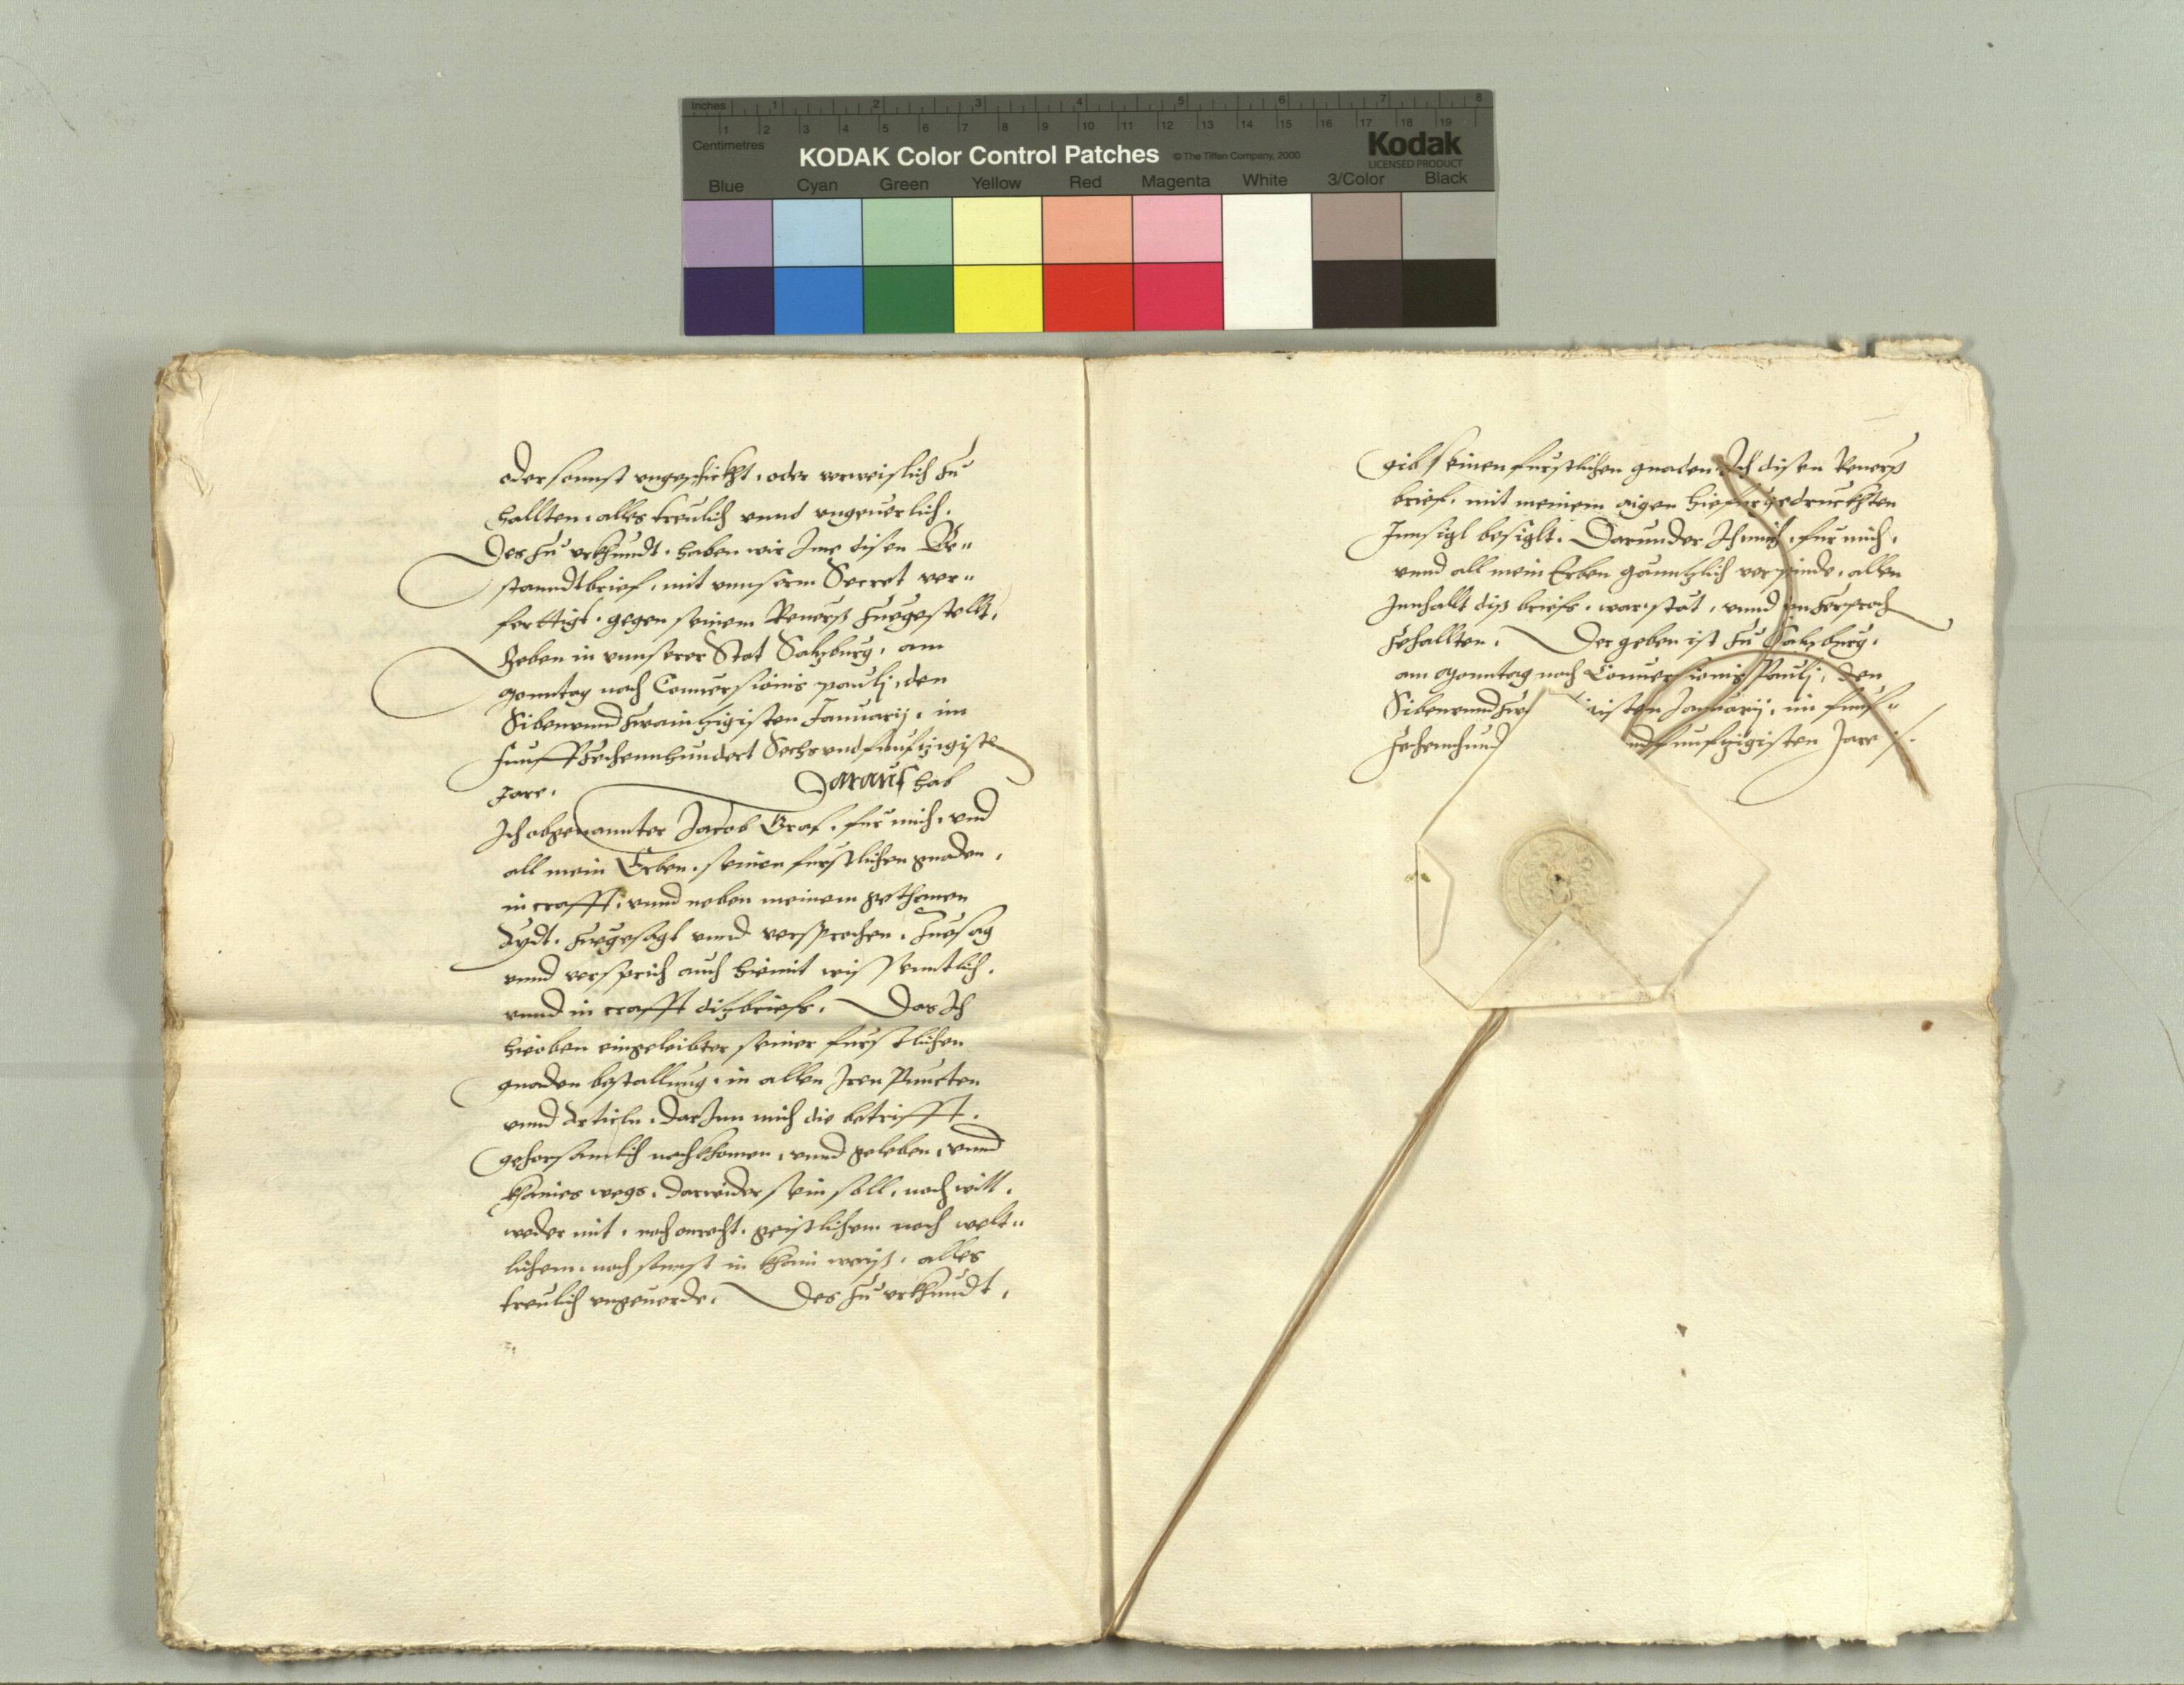 Inches 1 2 3 4 5 6 7 8
1 2 3 4 5 6 7 8 9 10 11 12 13 14 15 16 17 18 19
Centimetres
KODAK Color Control Patches © The Tiffen Company, 2000 Kodak
LICENSED PRODUCT
Blue Cyan Green Yellow Red Magenta White 3/Color Black
oder sonnst ungeschickht, oder verweislich zu
hallten, alles treulich unnd ungeverlich.
Des zu urkhundt, haben wir Ime disen Be„
standtbrief, mit unnserm Secret ver„
ferttigt, gegen seinem Revers zuegestellt,
Geben in unnserer Stat Salzburg, am
Monntag nach Conversionis paulj, den
Sibenundzwainzigisten Januarij, im
Funffzechennhundert Sechsundfunfzigisten
Jare. Darauf hab
Ich obgenannter Jacob Graf, fur mich, und
all mein Erben, seinen furstlichen gnaden,
in crafft, unnd neben meinem gethanen
Aydt, zuegesagt unnd versprochen, Zuesag
unnd versprich auch hiemit wissenntlich,
unnd in crafft ditzbriefs, Das Ich
hieoben eingeleibter seiner furstlichen
gnaden bestallung, in allen Iren Puncten
unnd Articln, darInn mich die betrifft,
gehorsamlich nachkhomen, unnd geleben, unnd
khaines wegs, darwider sein soll, noch will,
weder mit, noch onrecht, geistlichem noch welt„
lichem, noch sonnst in khain weiß, alles
treulich ungeverde. Des zu urkhundt,
gib seinen furstlichen gnaden, Ich disen Revers
brief, mit meinem aigen hiefur gedruckhten
Innsigl besiglt. Darunder Ich mich, fur mich,
unnd all mein Erben ganntzlich verpinde, allen
Innhallt diß briefs, war, stat, unnd unzerproch
zehallten. Der geben ist zu Salzburg,
am Monntag nach Conversionis Paulj, den
Sibenundzw isten Januarij, im funf„
zechenhund undfunfzigisten Jare